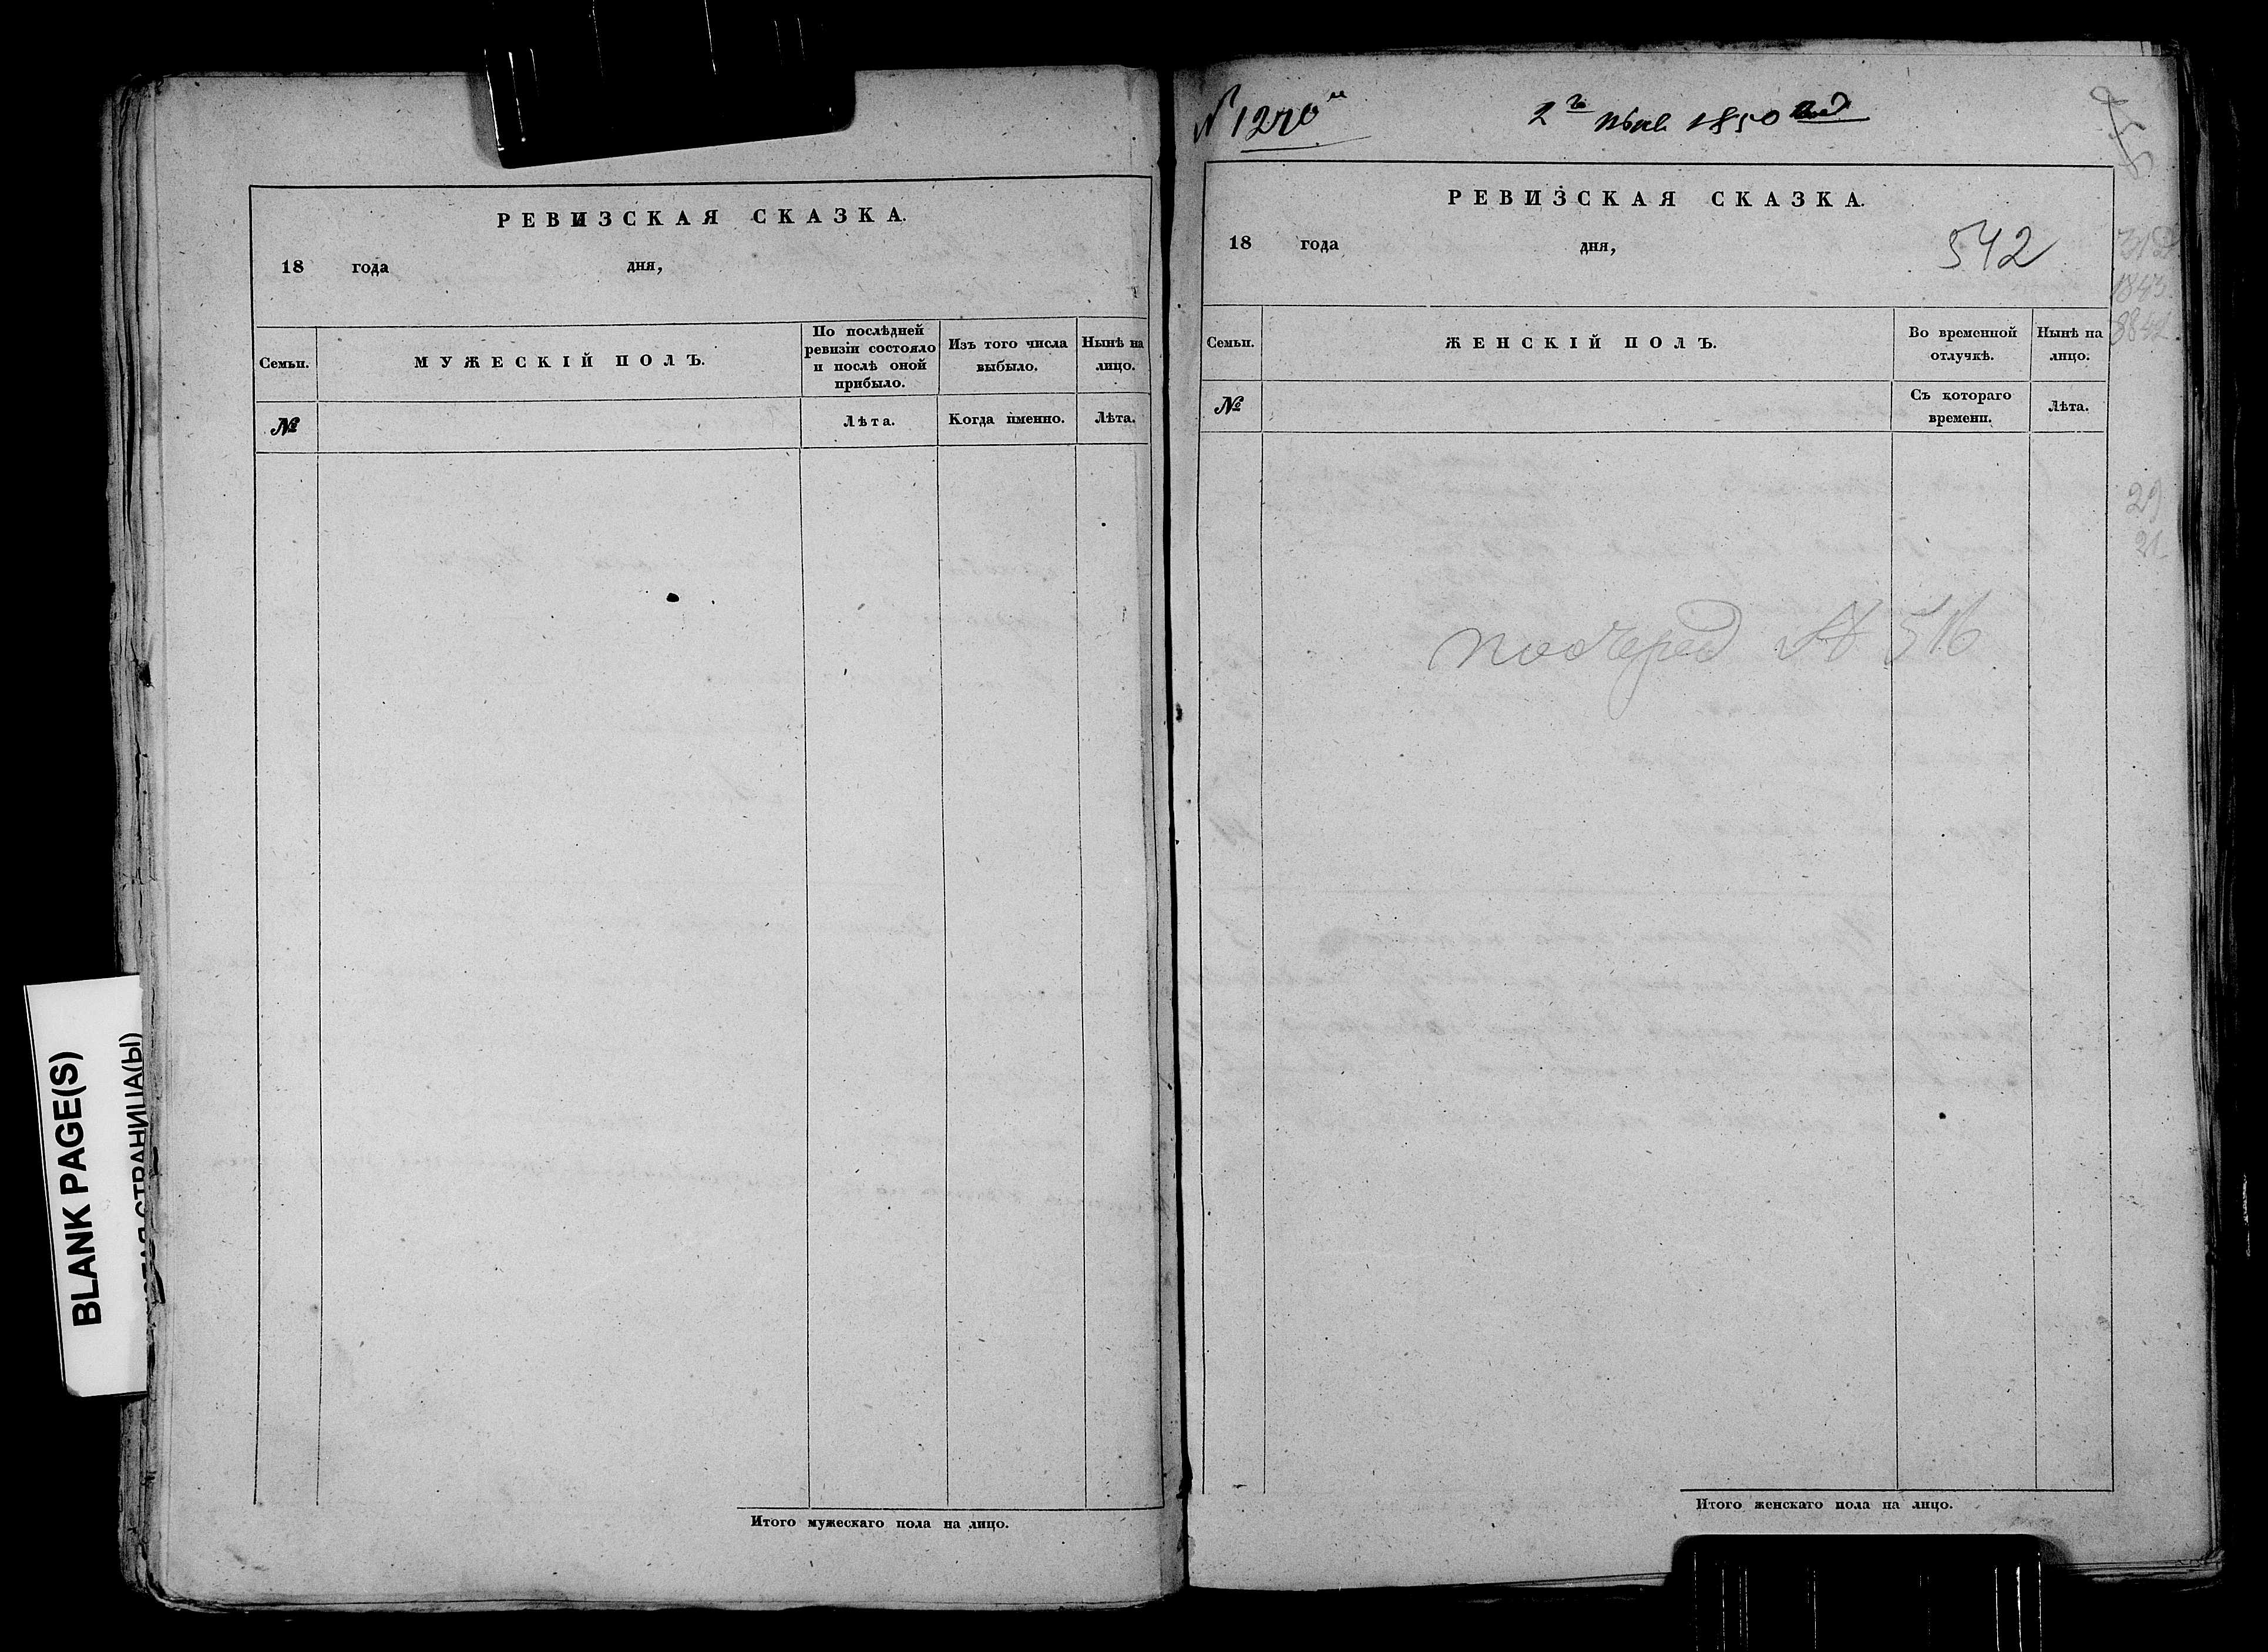 РЕВИЗСКАЯ СКАЗКА.
18 года дня,
Семьи.
МУЖЕСКІЙ ПОЛЪ.
По послѣдней
ревизіи состояло
и послѣ оной
прибыло.
Изъ того числа
выбыло.
Нынѣ на
лицо.
№
Лѣта.
Когда именно.
Лѣта.
Итого мужескаго пола на лицо.
BLANK PAGE(S)
СТРАНИЦА(Ы)
2го 1850
РЕВИЗСКАЯ СКАЗКА.
18 года дня,
542
Семьи.
ЖЕНСКІЙ ПОЛЪ.
Во временной
отлучкѣ.
Нынѣ на
лицо.
№
Съ котораго
времени.
Лѣта.
29
21
№ 516
Итого женскаго пола на лицо.